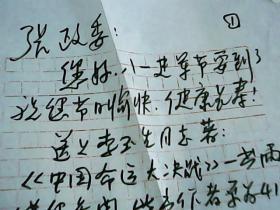 ①
张政委:
您好!八一建军节要到了
祝您节日愉快,健康长寿!
送上李玉生同志著:
《中国命运大决战》一书两